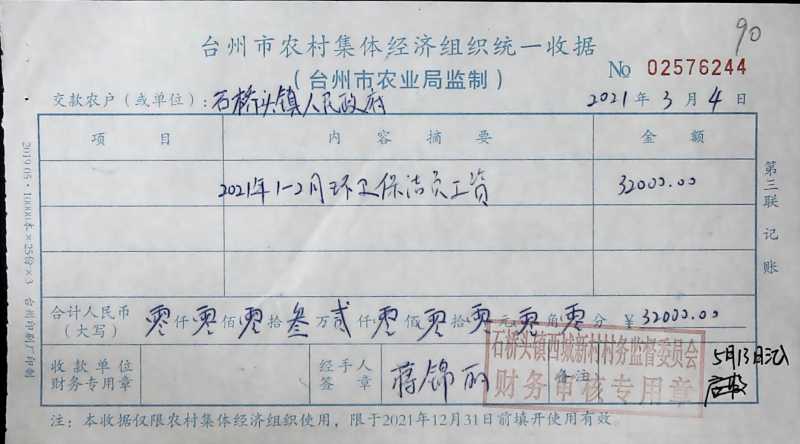 90
台州市农村集体经济组织统一收据
(台州市农业局监制)
No 02576244
交款农户(或单位):石桥头镇人民政府
2021年3月4日
项 目 内 容 摘 要 金 额
2021年1-2月环卫保洁员工资 32000.00
合计人民币(大写) 零仟零佰零拾叁万贰仟零佰零拾零元零角零分 ¥32000.00
收款单位财务专用章 经手人签章 蒋锦丽 备注
石桥头镇西城新村村务监督委员会
财务审核专用章
5月13日
注:本收据仅限农村集体经济组织使用,限于2021年12月31日前填开使用有效
第三联 记账
2019.05·10000本×25份×3 台州印刷厂印制